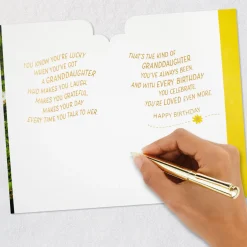 YOU KNOW YOU'RE LUCKY
WHEN YOU'VE GOT
A GRANDDAUGHTER
WHO MAKES YOU LAUGH,
MAKES YOU GRATEFUL,
MAKES YOUR DAY
EVERY TIME YOU TALK TO HER
THAT'S THE KIND OF
GRANDDAUGHTER
YOU'VE ALWAYS BEEN,
AND WITH EVERY BIRTHDAY
YOU CELEBRATE,
YOU'RE LOVED EVEN MORE.
HAPPY BIRTHDAY